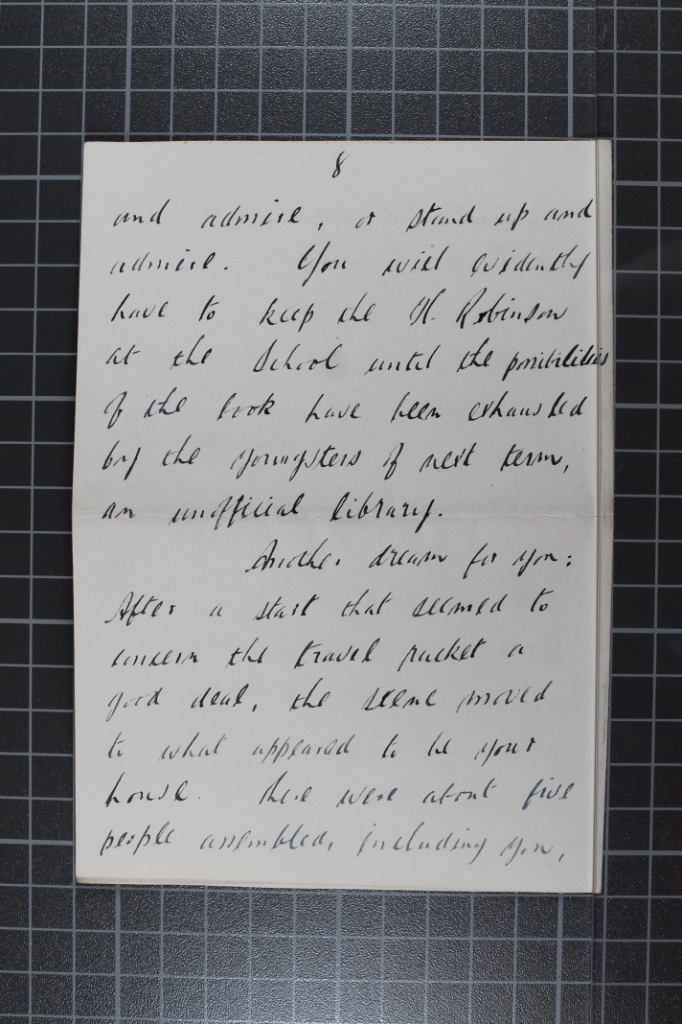 8
and admire, or stand up and
admire. You will evidently
have to keep the H. Robinson
at the School until the posibilities
of the book have been exhausted
by the youngsters of next term,
an unofficial library.
Another dream for you:
After a start that seemed to
concern the travel racket a
good deal, the scene moved
to what appeared to be your
house. There were about five
people assembled, including you,